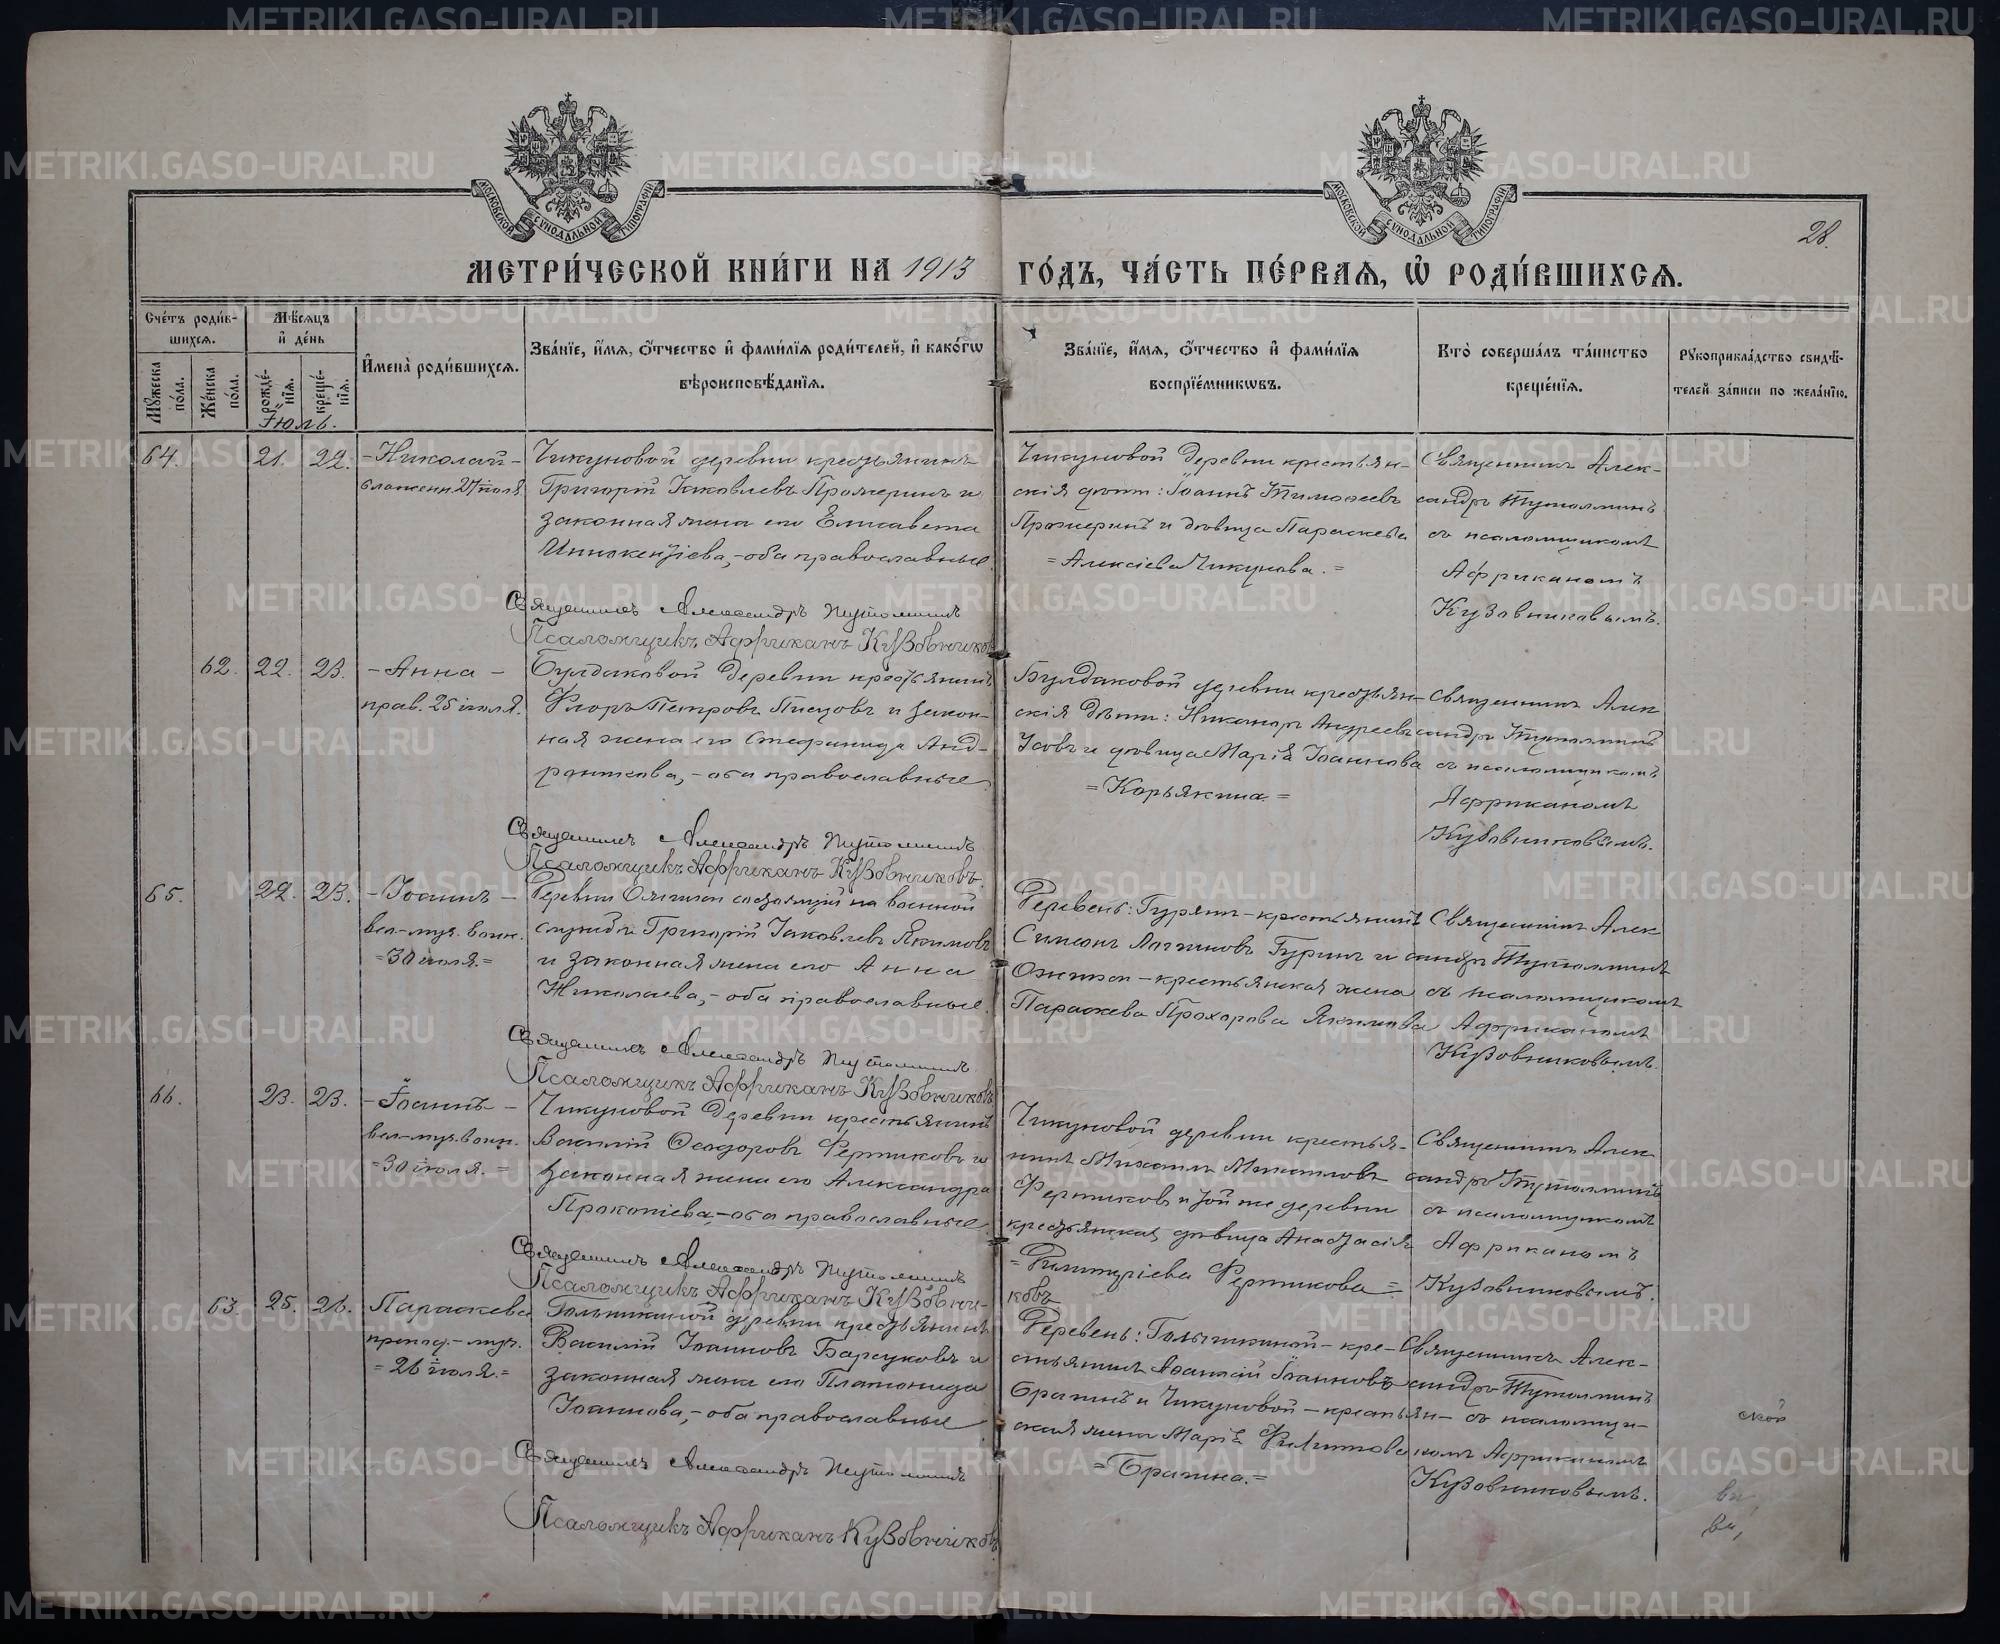 МЕТРИ́ЧЕСКОЙ КНИ́ГИ НА 1913 ГО́ДЪ, ЧА́СТЬ ПЕ́РВАЯ, Ѡ РОДИ́ВШИХСЯ.
28.
МОСКОВСКОЙ СѴНОДАЛЬНОЙ ТИПОГРАФІИ
МОСКОВСКОЙ СѴНОДАЛЬНОЙ ТИПОГРАФІИ
Сче́тъ роди́вшихся.
Му́жеска по́ла.
Же́нска по́ла.
Мѣ́сяцъ и де́нь
рожде́нія.
креще́нія.
Имена̀ роди́вшихся.
Зва́ніе, и́мя, о́тчество и фами́лія роди́телей, и како́гѡ
вѣроисповѣ́данія.
Зва́ніе, и́мя, о́тчество и фами́лія
воспріе́мниковъ.
Кто̀ соверша́лъ та́инство
креще́нія.
Рукоприкла́дство свидѣ́-
телей за́писи по жела́нію.
Іюль.
64. 21. 22. – Николай –
27 іюля
Чикуновой деревни крестьянинъ
Григорій Іаковлевъ Прожеринъ и
законная жена его Елисавета
Иннокентіева, – оба православные
Священникъ Александръ Тутолминъ
Псаломщикъ Африканъ Кузовниковъ
Чикуновой деревни крестьян-
скія дѣти: Іоаннъ Тимоѳеевъ
Прожеринъ и дѣвица Параскева
= Алексіева Чикунова. =
Священникъ Алек-
сандръ Тутолминъ
съ псаломщикомъ
Африканомъ
Кузовниковымъ.
62. 22. 23. – Анна –
прав. 25 іюля.
Булдаковой деревни крестьянинъ
Флоръ Петровъ Писцовъ и закон-
ная жена его Стефанида Анд-
роникова, – оба православные
Священникъ Александръ Тутолминъ
Псаломщикъ Африканъ Кузовниковъ.
Булдаковой деревни крестьян-
скія дѣти: Никаноръ Андреевъ
Усовъ и дѣвица Марія Іоаннова
= Корьякина =
Священникъ Алек-
сандръ Тутолминъ
съ псаломщикомъ
Африканомъ
Кузовниковымъ.
65. 22. 23. – Іоаннъ –
вел-муч. воин.
= 30 іюля. =
Деревни состоящій на военной
службѣ Григорій Іаковлевъ Якимовъ
и законная жена его Анна
Николаева, – оба православные.
Священникъ Александръ Тутолминъ
Псаломщикъ Африканъ Кузовниковъ
Деревень: – крестьянинъ
Симеонъ Логиновъ Гуринъ и
– крестьянская жена
Параскева Прохорова Якимова
Священникъ Алек-
сандръ Тутолминъ
съ псаломщикомъ
Африканомъ
Кузовниковымъ.
66. 23. 23. – Іоаннъ –
вел-муч. воин.
= 30 іюля. =
Чикуновой деревни крестьянинъ
Василій Ѳеодоровъ Фертиковъ и
законная жена его Александра
Прокопіева, – оба православные
Священникъ Александръ Тутолминъ
Псаломщикъ Африканъ Кузовни-
ковъ
Чикуновой деревни крестья-
нинъ Михаилъ Михаиловъ
Фертиковъ и той же деревни
крестьянская дѣвица Анастасія
= Димитріева Фертикова =
Священникъ Алек-
сандръ Тутолминъ
съ псаломщикомъ
Африканомъ
Кузовниковымъ.
63. 25. 26. Параскева
препод.-муч.
= 26 іюля. =
деревни крестьянинъ
Василій Іоанновъ Барсуковъ и
законная жена его Платонида
Іоаннова, – оба православные
Священникъ Александръ Тутолминъ
Псаломщикъ Африканъ Кузовниковъ
Деревень: – кре-
стьянинъ Іоанновъ
Брагинъ и Чикуновой – крестьян-
ская жена Марія Филиппова
= Брагина. =
Священникъ Алек-
сандръ Тутолминъ
съ псаломщи-
комъ Африканомъ
Кузовниковымъ.
METRIKI.GASO-URAL.RU